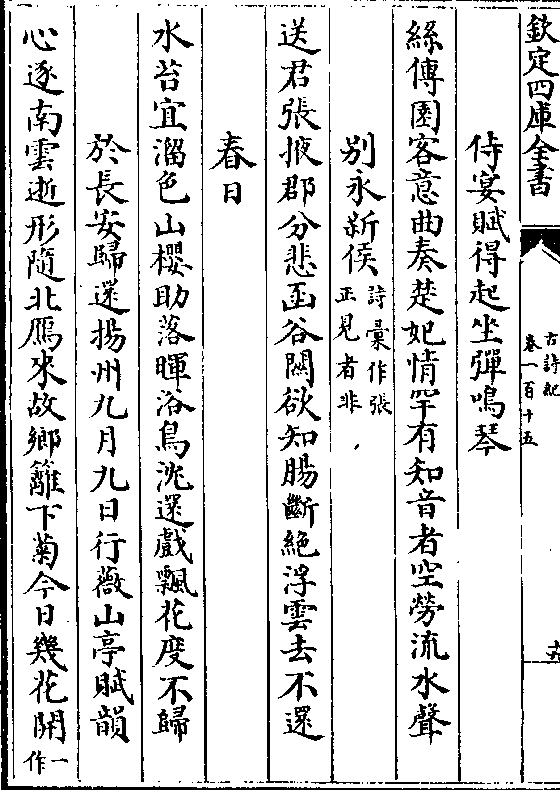 欽定四庫全書
古詩紀
卷一百十五
侍宴賦得起坐彈鳴琴
絲傳園客意曲奏楚妃情罕有知音者空勞流水聲
別永新侯詩彙作張正見者非
送君張掖郡分悲函谷關欲知腸斷絕浮雲去不還
春日
水苔宜溜色山櫻助落暉浴鳥沈還戲飄花度不歸
於長安歸還揚州九月九日行薇山亭賦韻
心逐南雲逝形隨北鴈來故鄉籬下菊今日幾花開一作